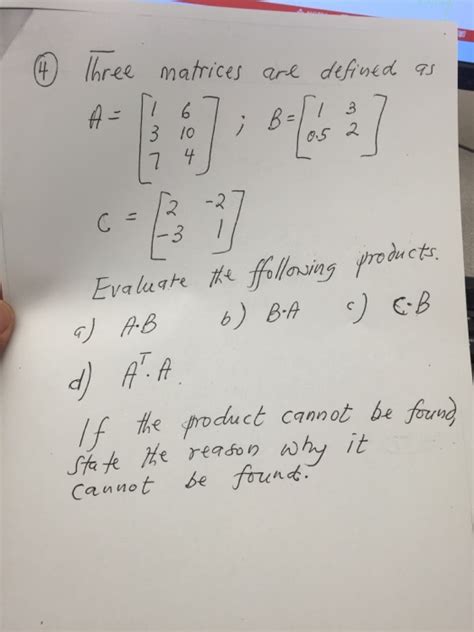 ④ Three matrices are defined as
A = [1 6
3 10
7 4] ; B = [1 3
0.5 2]
C = [2 -2
-3 1]
Evaluate the ffollowing products.
a) A·B b) B·A c) C·B
d) Aᵀ·A.
If the product cannot be found,
state the reason why it
cannot be found.